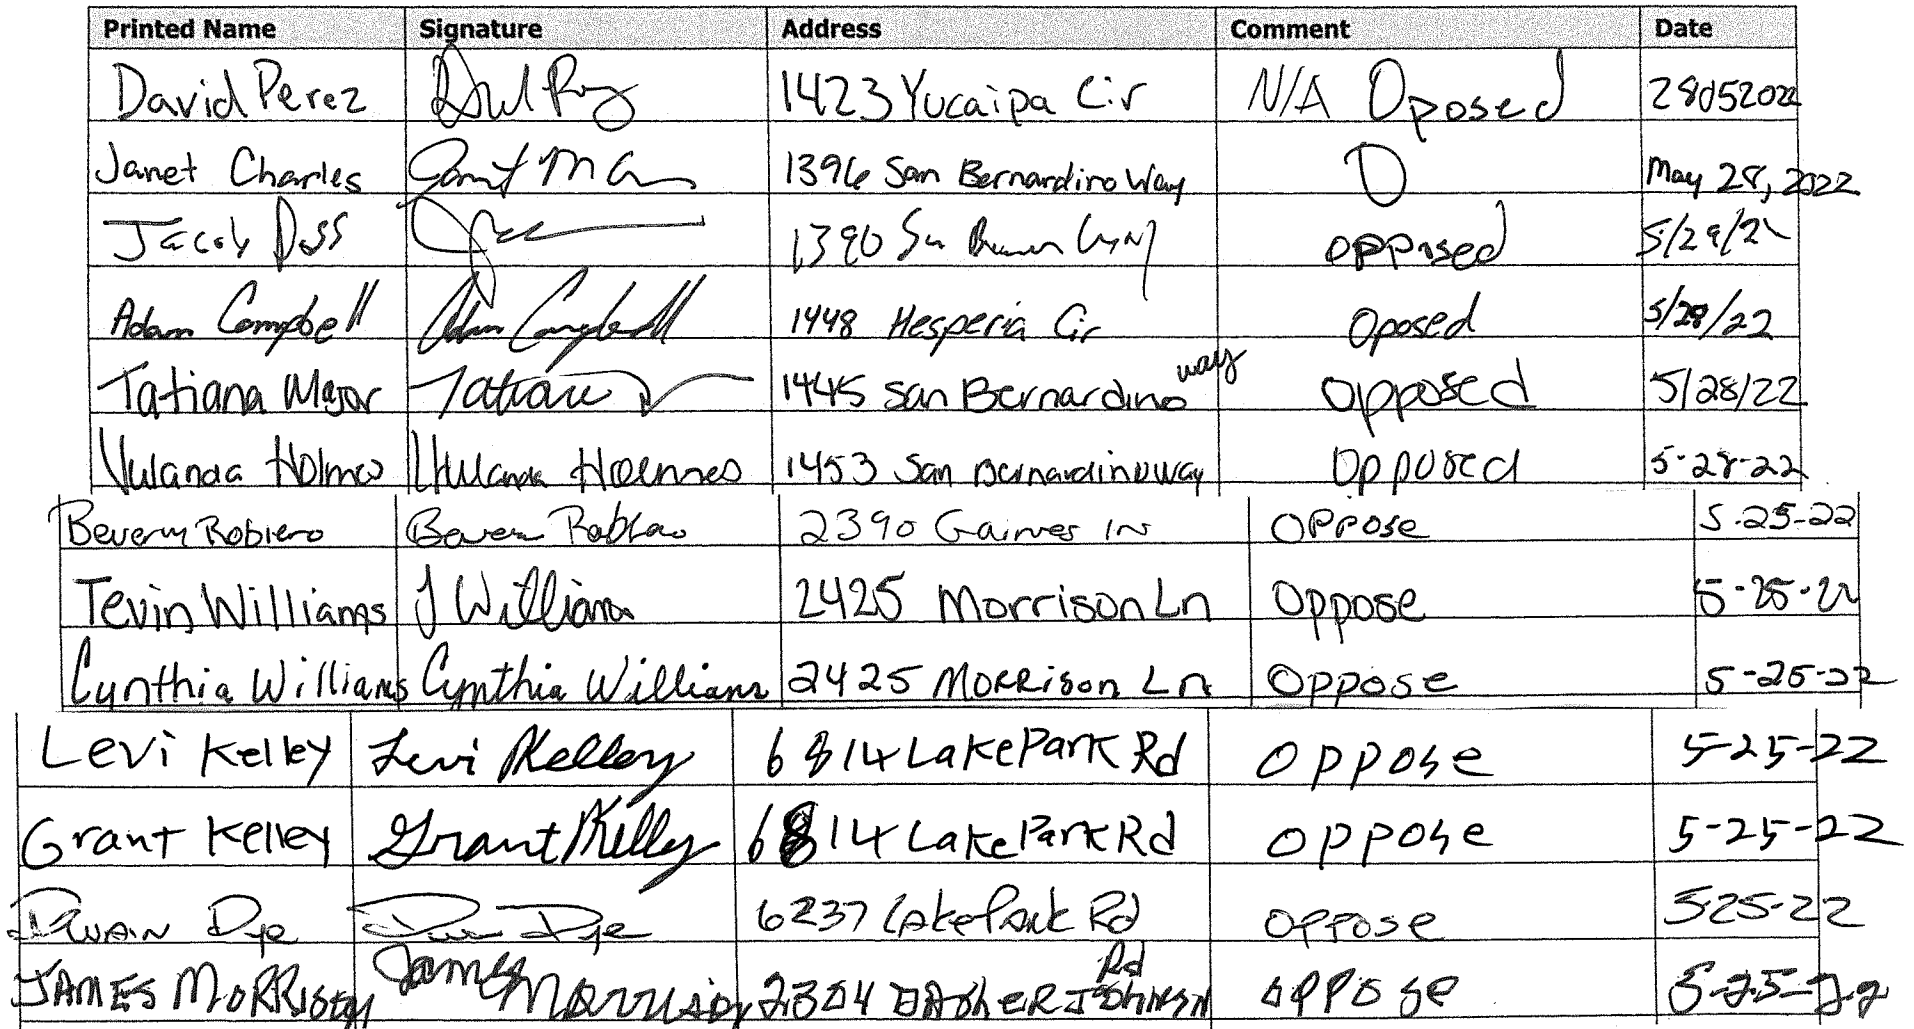 Printed Name Signature Address Comment Date
David Perez 1423 Yucaipa Cir N/A Oposed 28052022
Janet Charles 1396 San Bernardino Way O May 28, 2022
Jacob 1390 opposed 5/29/22
Adam Campbell Adam Campbell 1448 Hesperia Cir Oposed 5/28/22
Tatiana Major 1445 San Bernardino way opposed 5/28/22
Holmes 1453 San Bernardino way Opposed 5-28-22
2390 Gaines ln OPPose 5-25-22
Tevin Williams J Williams 2425 Morrison Ln Oppose 5-25-22
Cynthia Williams Cynthia Williams 2425 Morrison Ln Oppose 5-25-22
Levi Kelley Levi Kelley 6814 Lake Park Rd oppose 5-25-22
Grant Kelley Grant Kelley 6814 Lake Park Rd oppose 5-25-22
Dwain Dye Dye 6237 Lake Park Rd oppose 525-22
JAMES MORRISON James Morrison 2304 Rd oppose 5-25-22